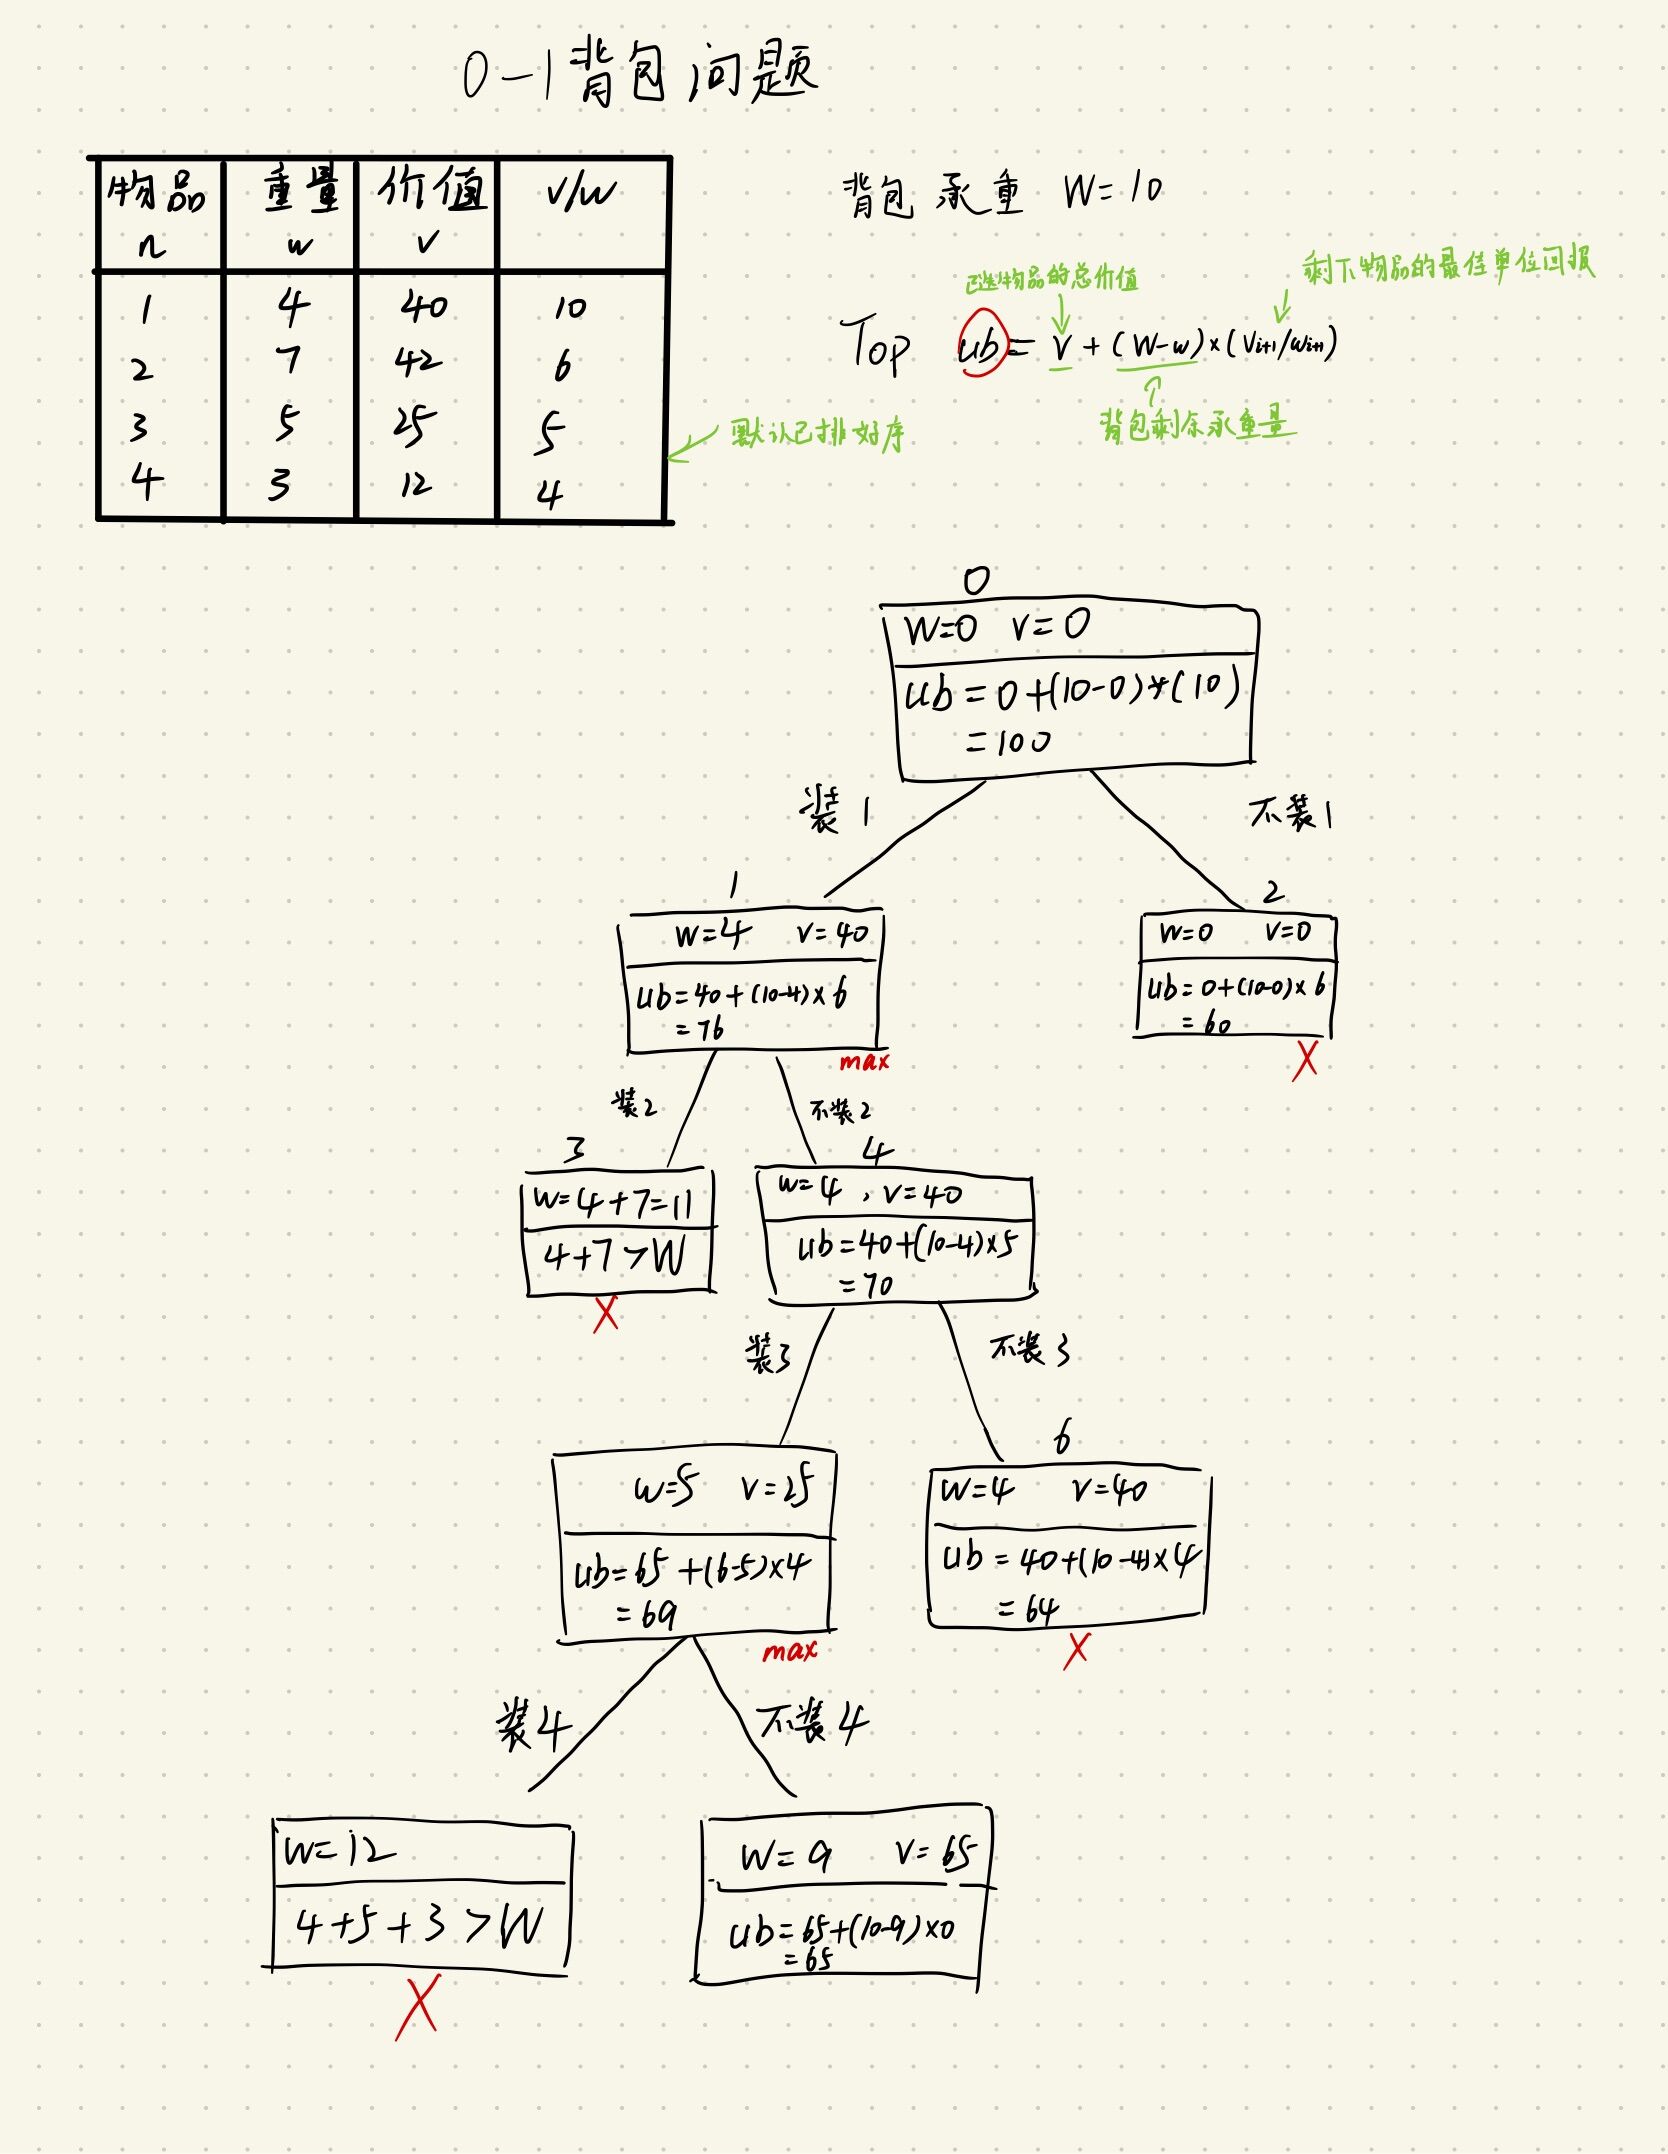 0-1背包问题
物品 重量 价值 v/w
n w v
1 4 40 10
2 7 42 6
3 5 25 5
4 3 12 4
默认已排好序
背包 承重 W=10
已选物品的总价值
剩下物品的最佳单位回报
Top ub = v + (W-w)×(Vi+1/wi+1)
背包剩余承重量
0
W=0 v=0
ub=0+(10-0)*(10)
=100
装1 不装1
1
w=4 v=40
ub=40+(10-4)×6
=76
max
2
w=0 v=0
ub=0+(10-0)×6
=60
X
装2 不装2
3
w=4+7=11
4+7>W
X
4
w=4, v=40
ub=40+(10-4)×5
=70
装3 不装3
w=5 v=25
ub=65+(6-5)×4
=69
max
6
w=4 v=40
ub=40+(10-4)×4
=64
X
装4 不装4
w=12
4+5+3>W
X
W=9 v=65
ub=65+(10-9)×0
=65